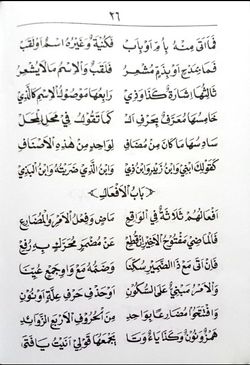 ٢٦
فَمَا أَتَى مِنْهُ بِأُمٍّ أَوْ بِأَبْ فَكُنْيَةٌ وَغَيْرُهُ اسْمٌ أَوْ لَقَبْ
فَمَا بِمَدْحٍ أَوْ بِذَمٍّ مُشْعِرُ فَلَقَبٌ وَالْاِسْمُ مَا لَا يُشْعِرُ
ثَالِثُهَا إِشَارَةٌ كَذَا وَذِي رَابِعُهَا مَوْصُولُ الْاِسْمِ كَالَّذِي
خَامِسُهَا مُعَرَّفٌ بِحَرْفِ اَلْ كَمَا تَقُولُ فِي مَحَلِّ الْمَحَلْ
سَادِسُهَا مَا كَانَ مِنْ مُضَافِ لِوَاحِدٍ مِنْ هَذِهِ الْأَصْنَافِ
كَقَوْلِكَ ابْنِي وَابْنُ زَيْدٍ وَابْنُ ذِي وَابْنُ الَّذِي ضَرَبْتُهُ وَابْنُ الْبَذِي
بَابُ الْأَفْعَالِ
أَفْعَالُهُمْ ثَلَاثَةٌ فِي الْوَاقِعِ مَاضٍ وَفِعْلُ الْأَمْرِ وَالْمُضَارِعِ
فَالْمَاضِ مَفْتُوحُ الْأَخِيْرِ إِنْ قُطِعْ عَنْ مُضْمَرٍ مُحَرَّكٍ بِهِ رُفِعْ
فَإِنْ أَتَى مَعْ ذَا الضَّمِيْرِ سُكِّنَا وَضَمُّهُ مَعْ وَاوِ جَمْعٍ عُيِّنَا
وَالْأَمْرُ مَبْنِيٌّ عَلَى السُّكُوْنِ أَوْ حَذْفِ حَرْفِ عِلَّةٍ أَوْ نُوْنِ
وَافْتَتَحُوْا مُضَارِعًا بِوَاحِدِ مِنَ الْحُرُوْفِ الْأَرْبَعِ الزَّوَائِدِ
هَمْزٌ وَنُوْنٌ وَكَذَا يَاءٌ وَتَا يَجْمَعُهَا قَوْلِي أَنَيْتُ يَا فَتَى